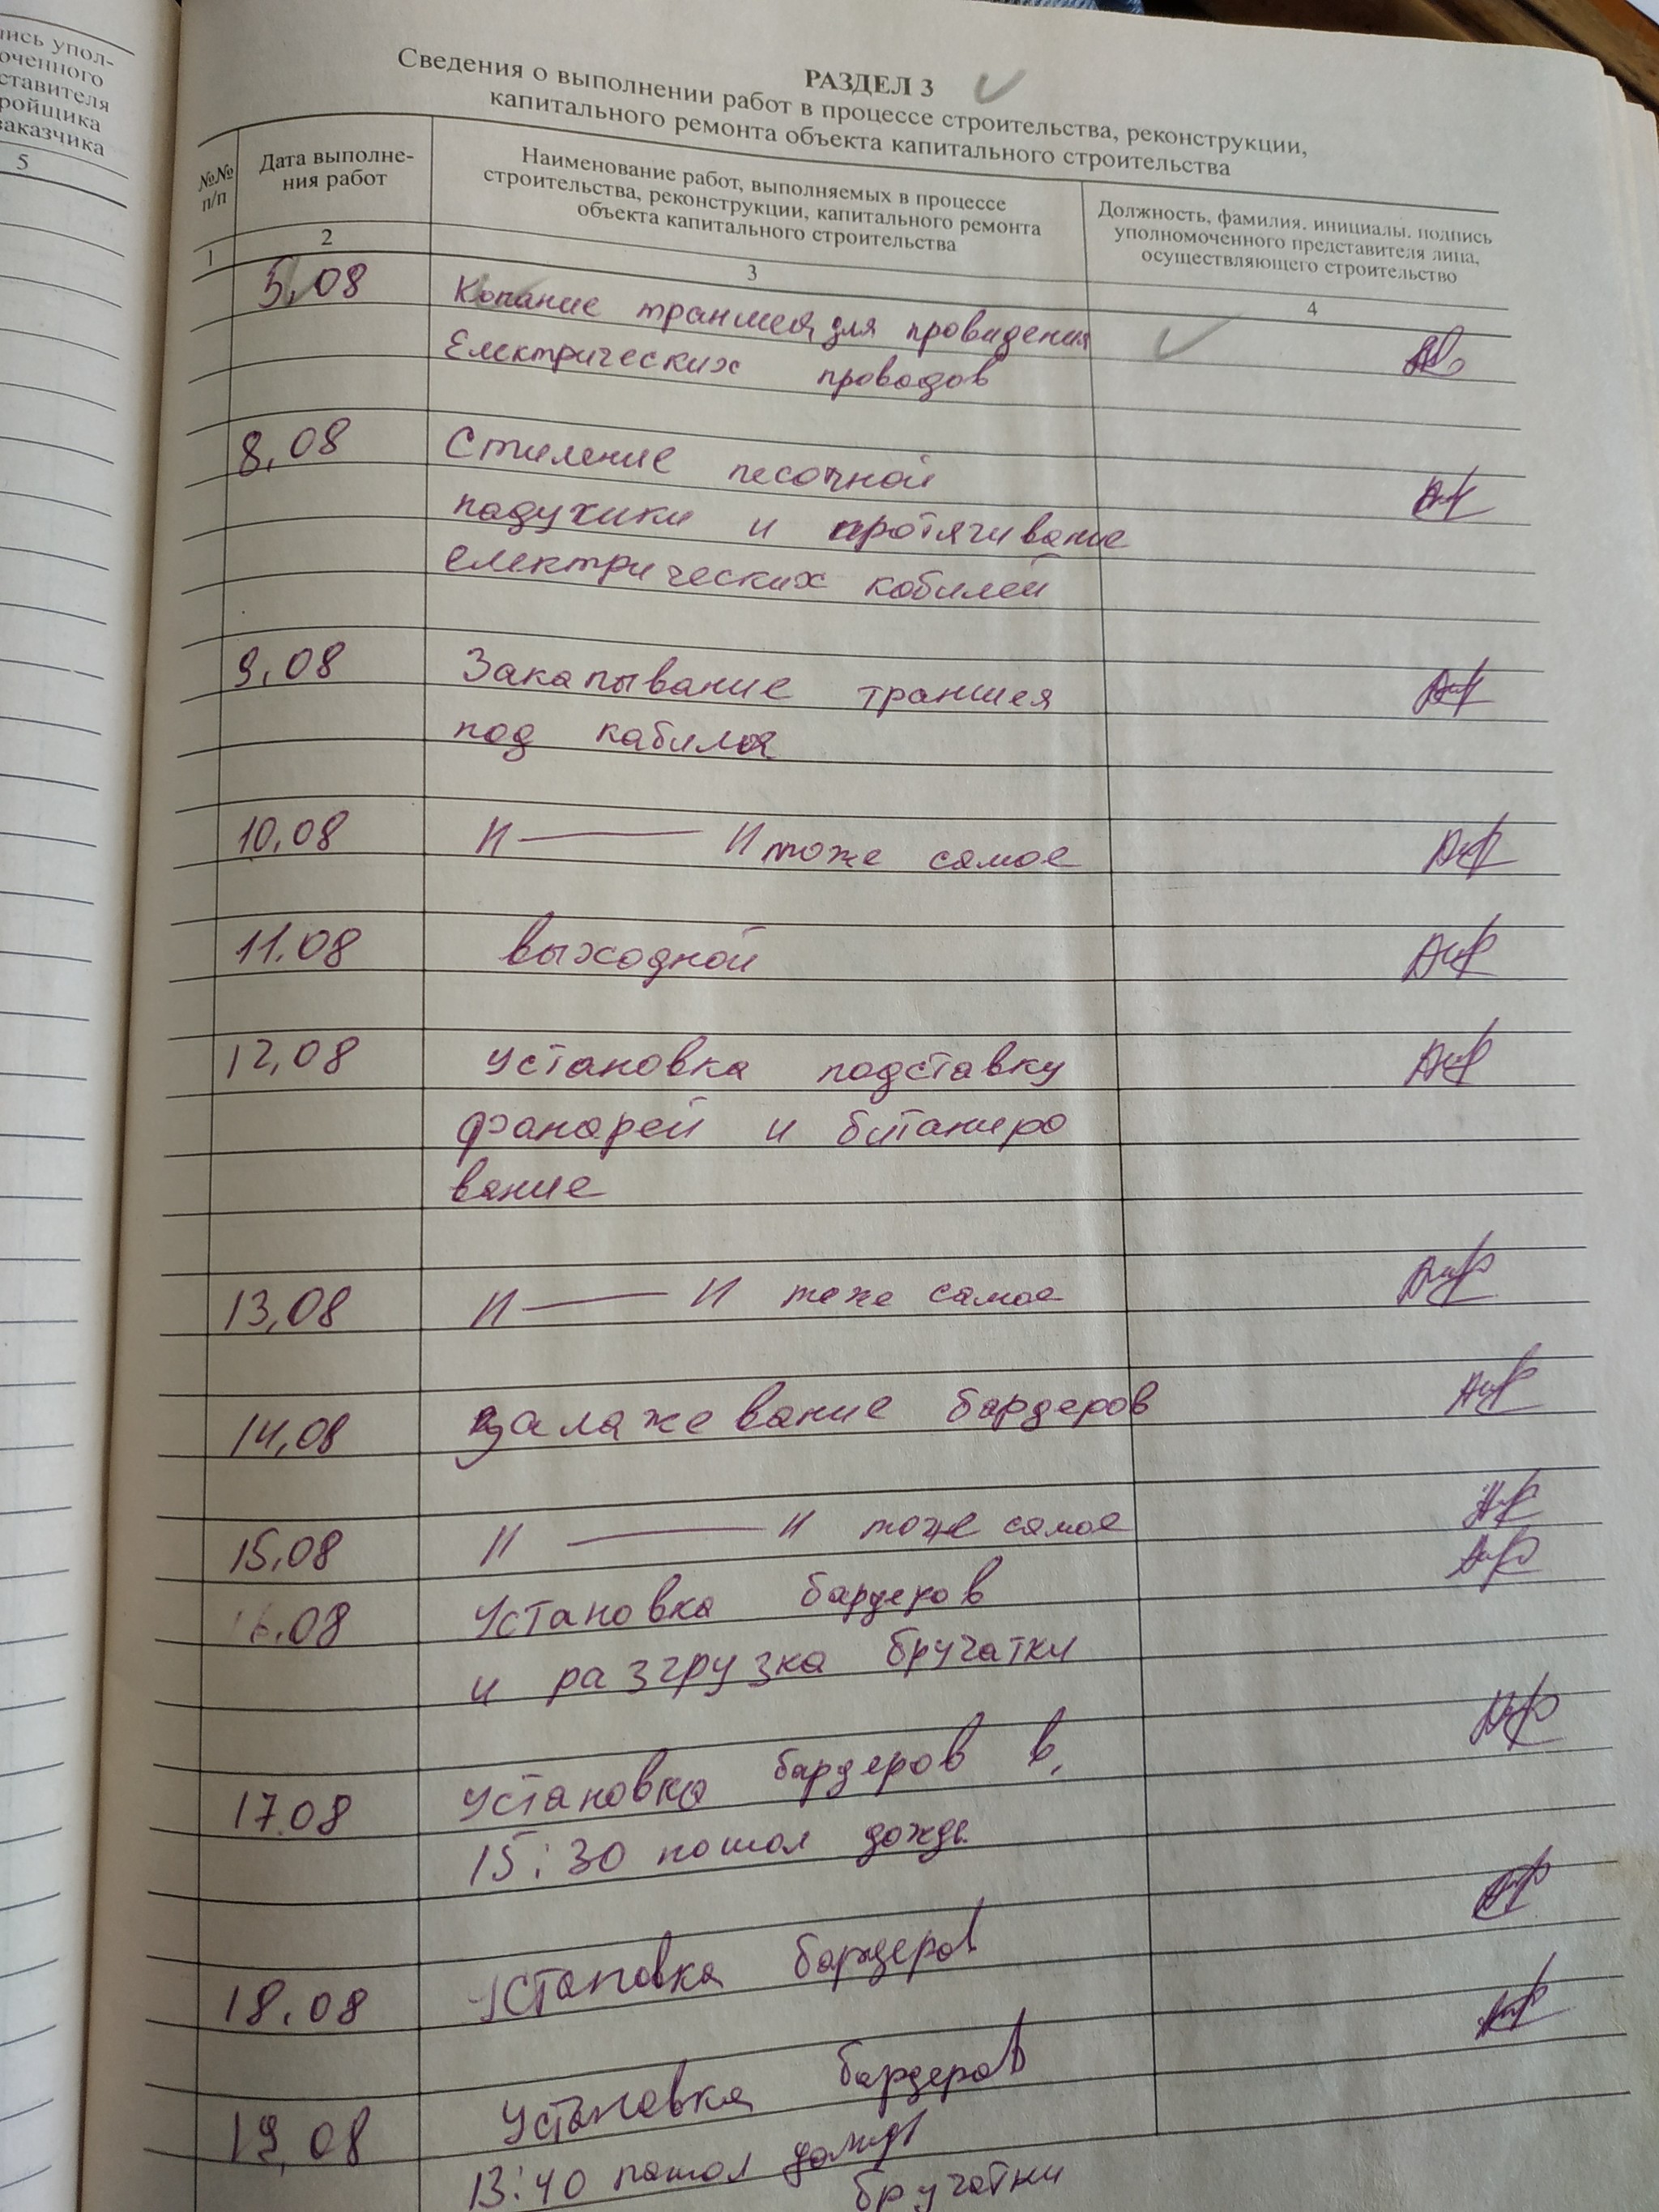 пись упол-
оченного
ставителя
ройщика
заказчика
5
РАЗДЕЛ 3
Сведения о выполнении работ в процессе строительства, реконструкции,
капитального ремонта объекта капитального строительства
№№
п/п
Дата выполне-
ния работ
Наименование работ, выполняемых в процессе
строительства, реконструкции, капитального ремонта
объекта капитального строительства
Должность, фамилия, инициалы, подпись
уполномоченного представителя лица,
осуществляющего строительство
1
2
3
4
5,08 Копание траншея для провидения
Електрических проводов
8,08 Стиление песочной
падухики и протягивание
електрических кобилей
9,08 Закапывание траншея
под кабиля
10,08 и — и тоже самое
11.08 выходной
12,08 Установка подставку
фанарей и битаниро
вание
13,08 и — и тоже самое
14,08 залажевание бардеров
15,08 и — и тоже самое
16.08 Установка бардеров
и разгрузка бручатки
17.08 Установка бардеров в,
15:30 пошол дождь
18.08 Установка бардеров
19,08 Установка бардеров
13:40 пошол дождь
бручатки